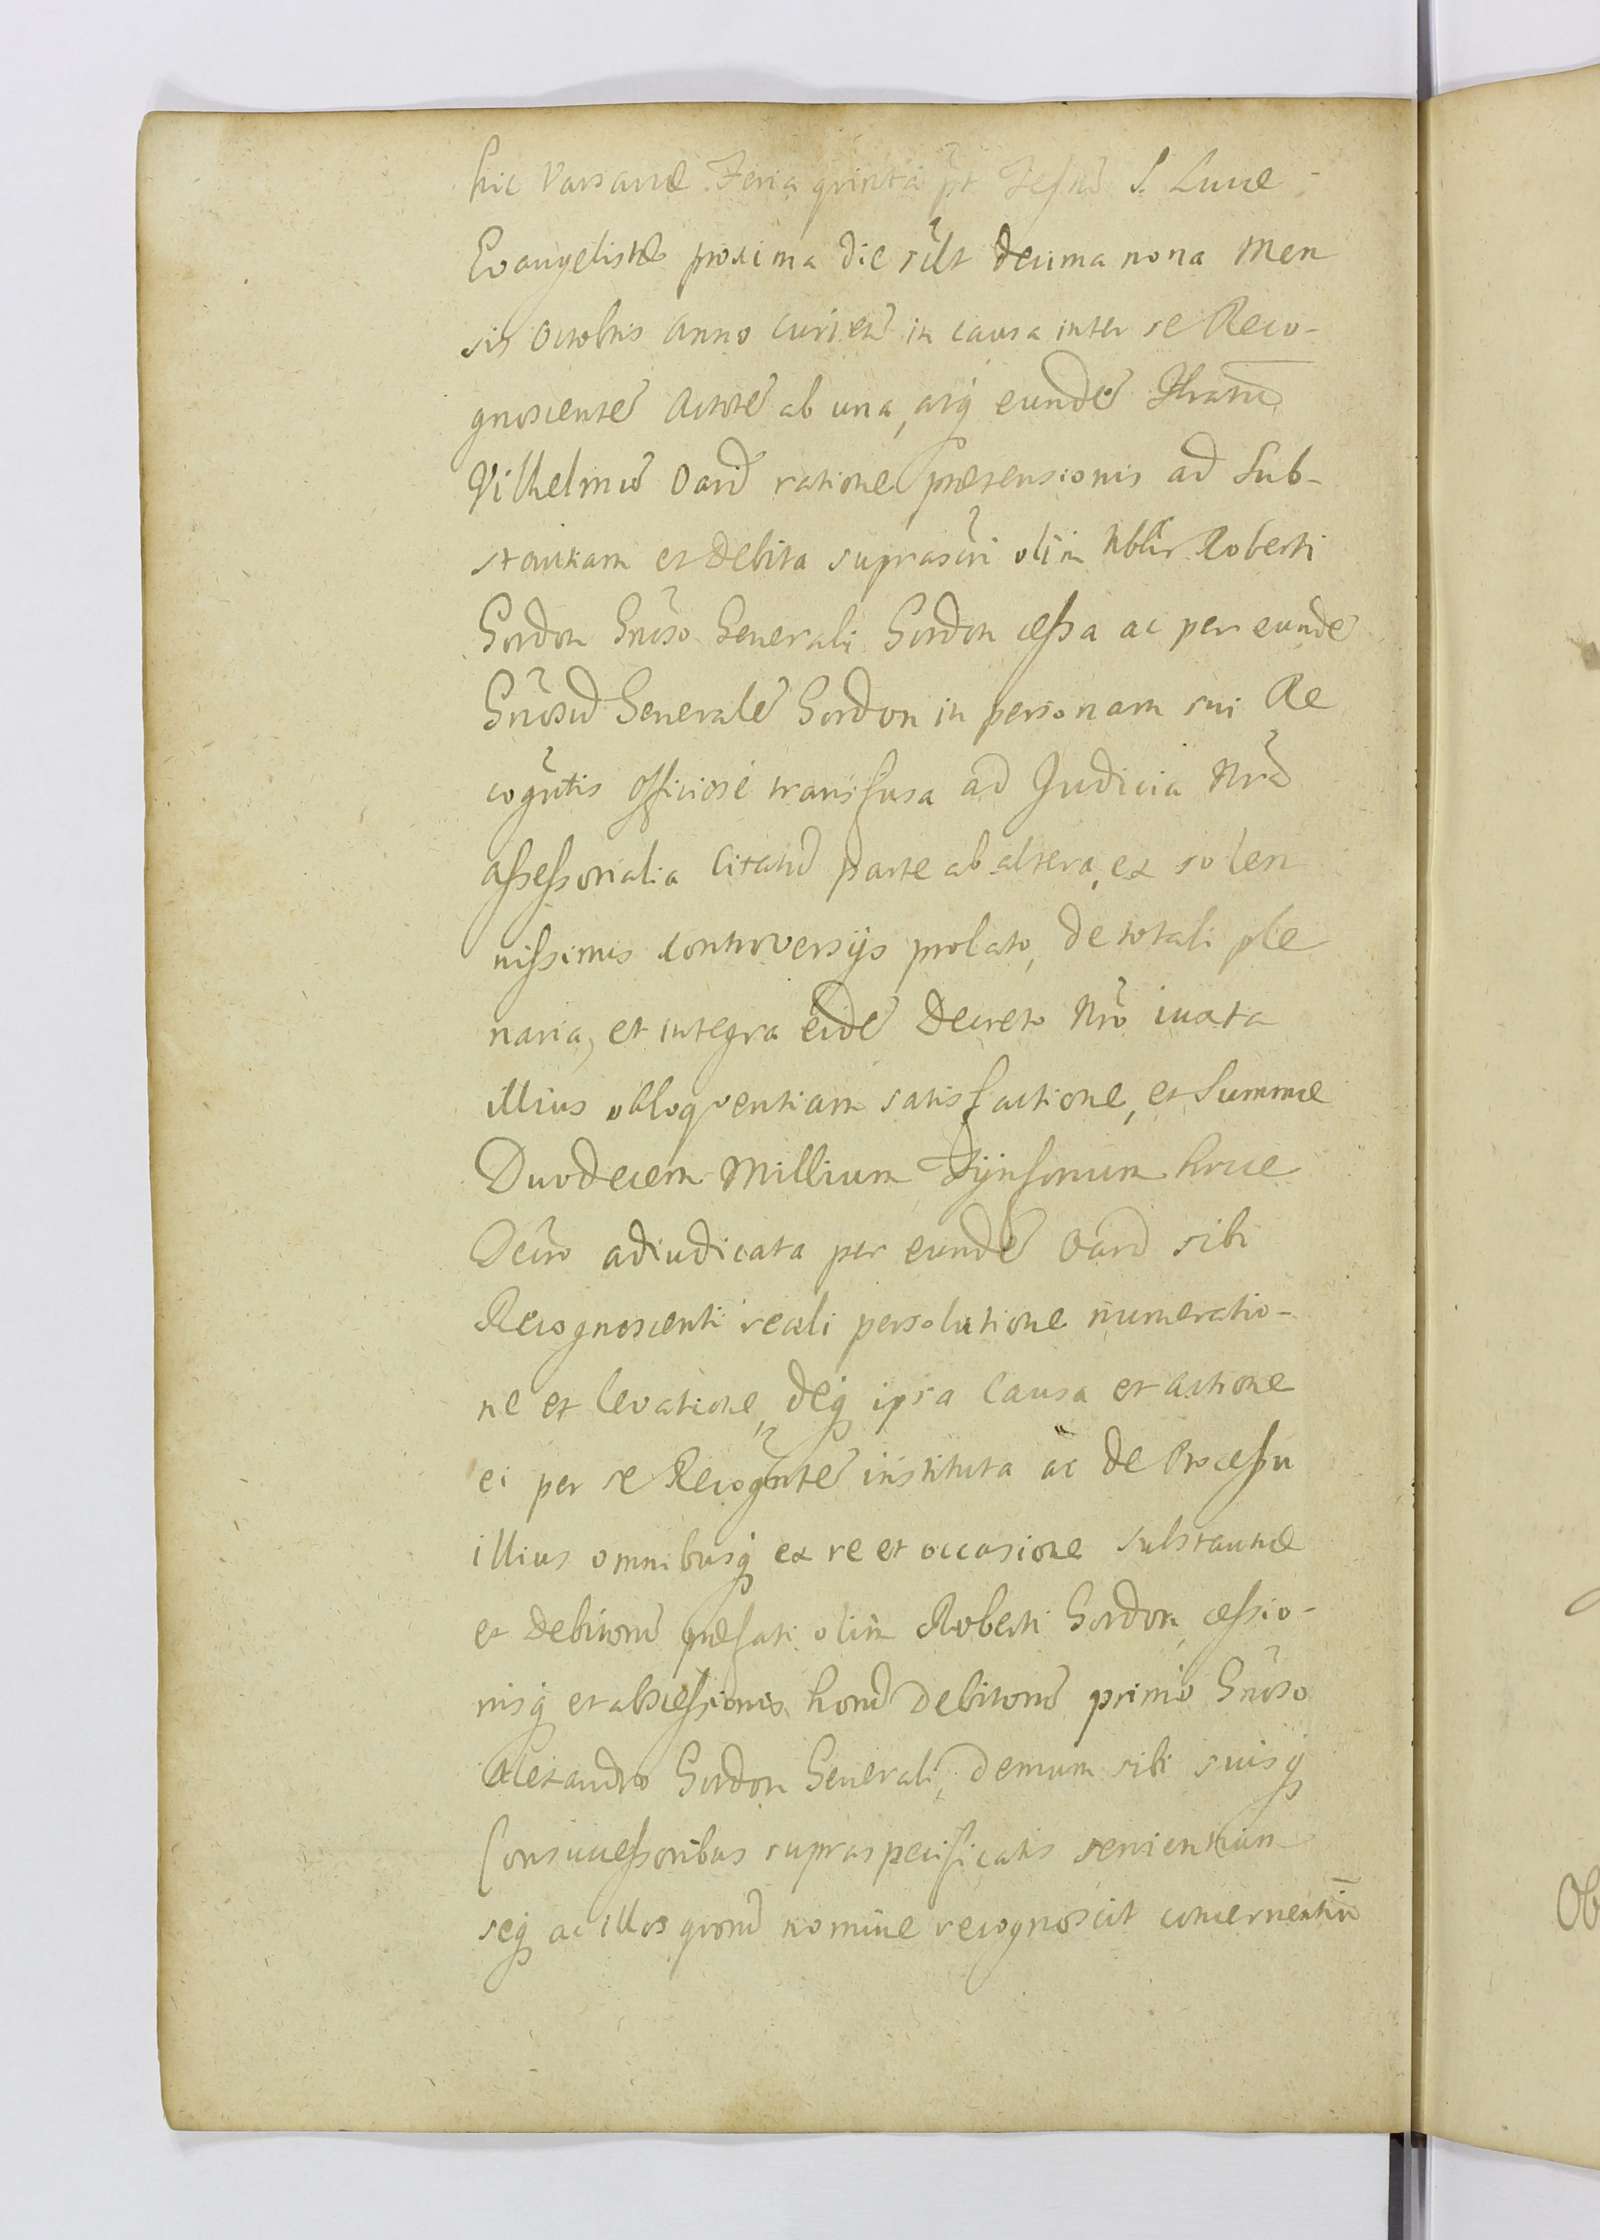 hic Varsaviæ Feria quinta pt Festũ S. Lucæ
Evangelistæ proxima die silt decima nona Men
sis Octobris Anno Curren in causa inter se Reco-
gnoscentẽ Actorẽ ab una, atq eundẽ
Vilhelmũ Oard ratione prætensionis ad Sub-
stantiam et debita suprascri olim Nblis Roberti
Gordon Gnõso Generali Gordon cessa ac per eundẽ
Gnõsũ Generalẽ Gordon in personam sui Re
cogñtis officiosè transfusa ad Judicia Nrã
assessorialia Citatũ parte ab altera, ex solen
nissimis controversijs prolato, de totali ple
naria, et integra eidẽ Decreto Nrõ iuxta
illius obloquentiam satisfactione, et Summæ
Duodecem Millium Tÿnforum hocce
Decrõ adiudicata per eundẽ Oard sibi
Recognoscenti reali persolutione numeratio-
ne et levatione, deq ipsa Causa et actione
ei per se Recogñtẽ instituta ac de Processu
illius omnibusq ex re et occasione substantiæ
et debitorũ præfati olim Roberti Gordon, cessio-
nisq et abscessionis horũ debitorũ primò Gnõso
Alexandro Gordon Generali, demum sibi suisq
Consuccessoribus supraspecificatis servientium
seq ac illos quorũ nomine recognoscit concernentiũ
Ob